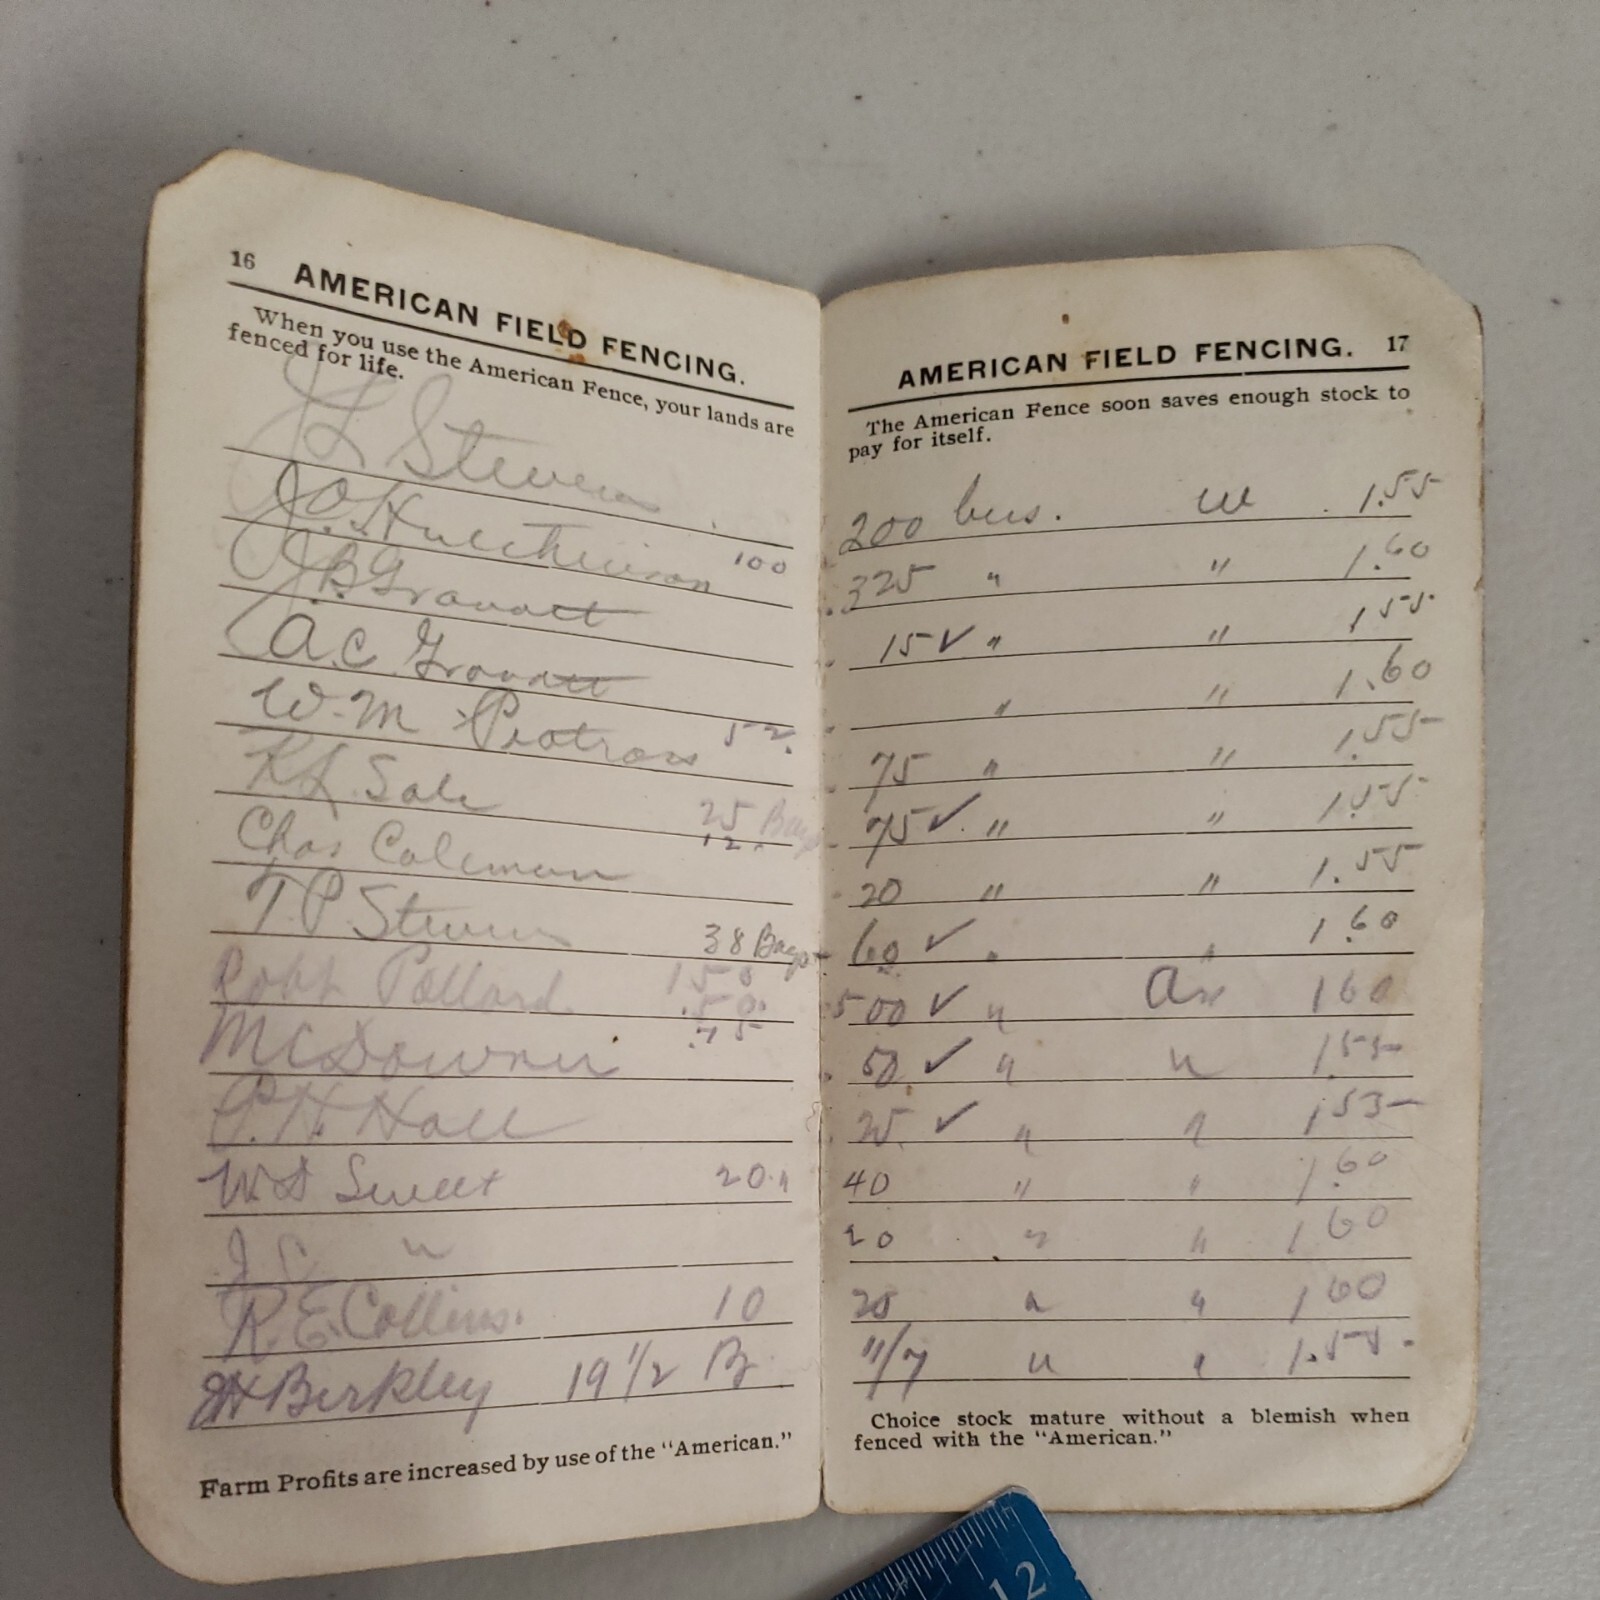 16 AMERICAN FIELD FENCING.
When you use the American Fence, your lands are
fenced for life.
Stevens
J. O. Hutcheinson 100
J. B. Gravatt
A. C. Gravatt
W. M 52.
K L Sale 25 Bags
12.
Chas Coleman
T. P. Stevens 38 Bags
Robt Pollard. 150
.50.
.75
McDowner
P. H. Hall
W. S Sweet 20 "
J S. "
R. E. Collins. 10
JH Berkley 19 1/2 B
Farm Profits are increased by use of the "American."
AMERICAN FIELD FENCING. 17
The American Fence soon saves enough stock to
pay for itself.
200 bus. W 1.55
325 " " 1.60
15 ✓ " " 1 55
" " 1.60
75 " " 1.55
75 ✓ " " 1.55
20 " " 1.55
60 ✓ " " 1 60
500 ✓ " 1 60
50 ✓ " " 1.55
25 ✓ " " 1 55
40 " " 1 60
20 " " 1 60
" " 1 60
" " 1.55
Choice stock mature without a blemish when
fenced with the "American."
12